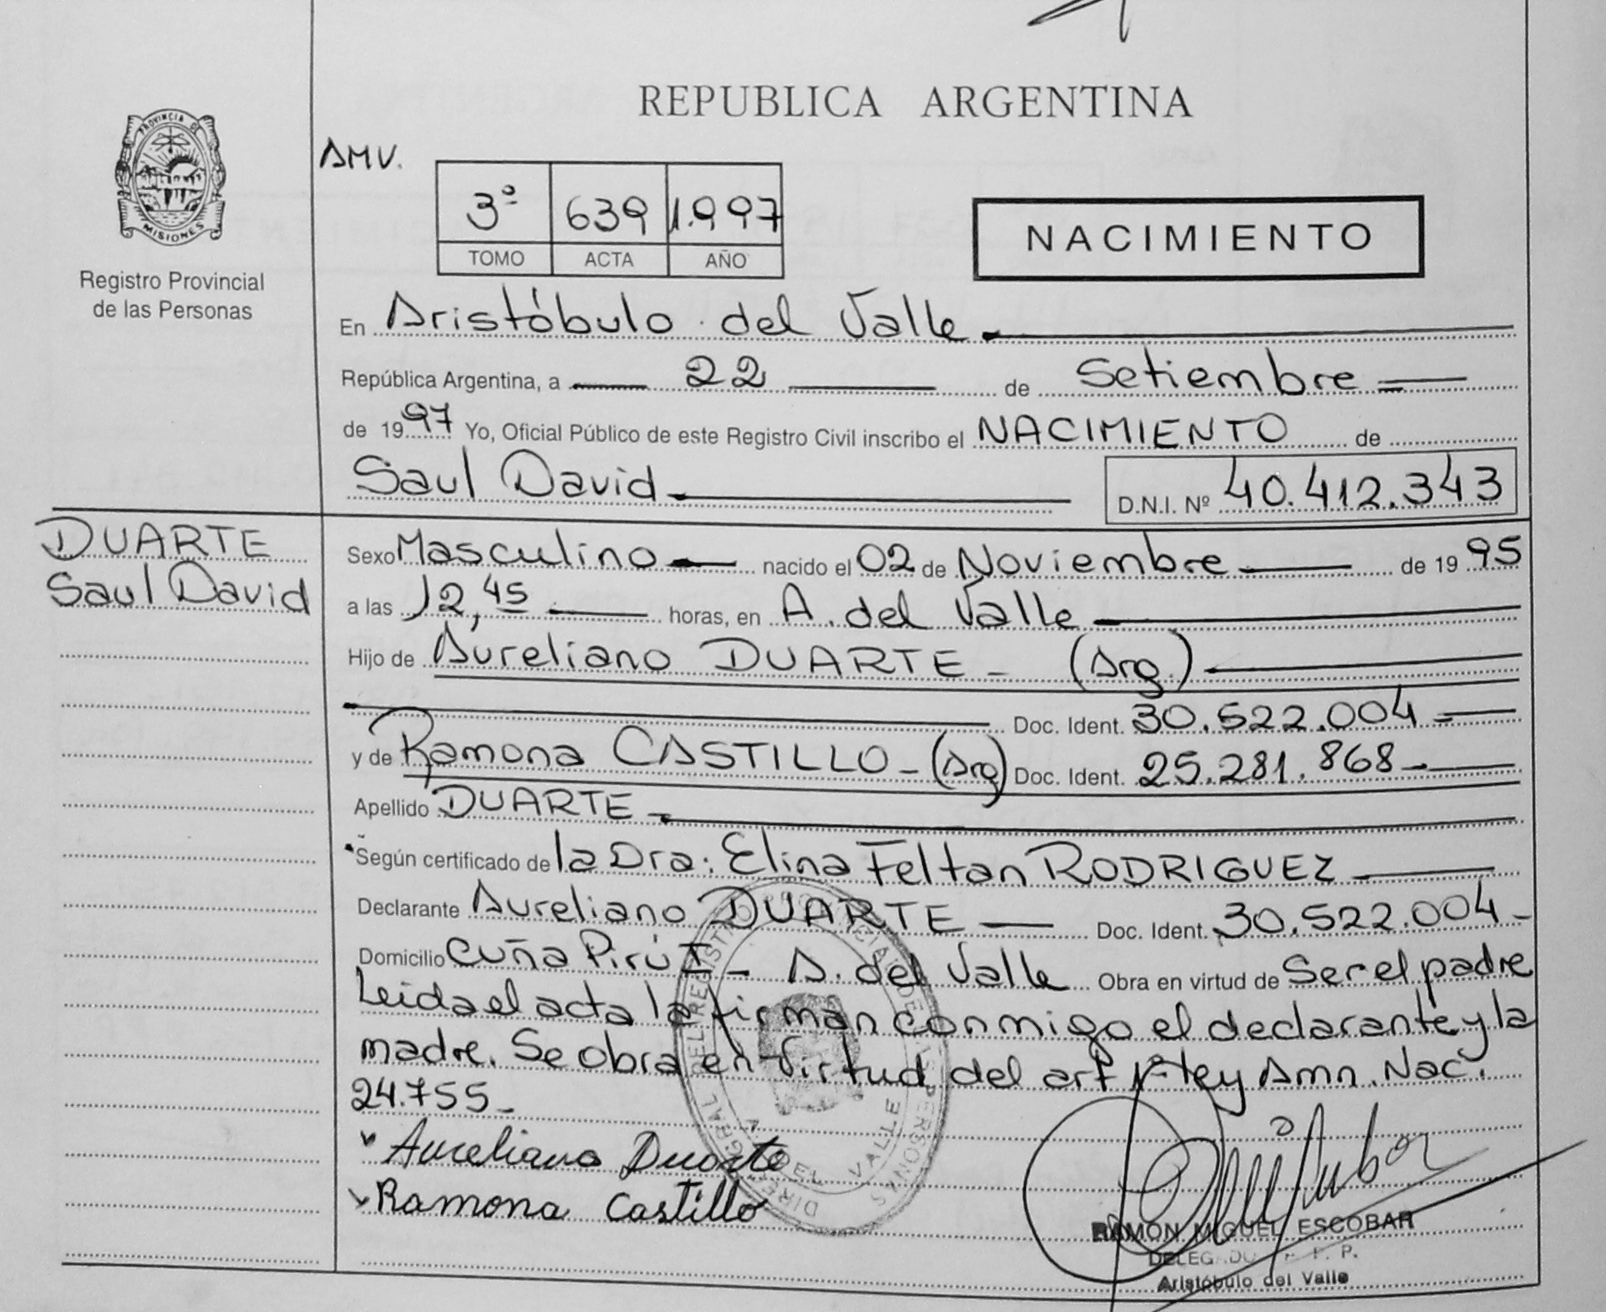 REPUBLICA ARGENTINA
PROVINCIA DE
MISIONES
Registro Provincial
de las Personas
AMV.
3º 639 1.997
TOMO ACTA AÑO
NACIMIENTO
En Aristóbulo del Valle
República Argentina, a 22 de Setiembre
de 1997 Yo, Oficial Público de este Registro Civil inscribo el NACIMIENTO de
Saul David D.N.I. Nº 40.412.343
DUARTE
Saul David
Sexo Masculino nacido el 02 de Noviembre de 1995
a las 12,45 horas, en A. del Valle
Hijo de Aureliano DUARTE - (Arg.)
Doc. Ident. 30.522.004
y de Ramona CASTILLO - (Arg) Doc. Ident. 25.281.868-
Apellido DUARTE
Según certificado de la Dra: Elina Feltan RODRIGUEZ
Declarante Aureliano DUARTE Doc. Ident. 30.522.004-
Domicilio Cuña Pirú I - A. del Valle Obra en virtud de Ser el padre
Leida el acta la firman conmigo el declarante y la
madre. Se obra en virtud del art 1º ley Amn. Nac.
24.755-
Aureliano Duarte
Ramona Castillo
RAMON MIGUEL ESCOBAR
DELEGADO R. P. P.
Aristóbulo del Valle